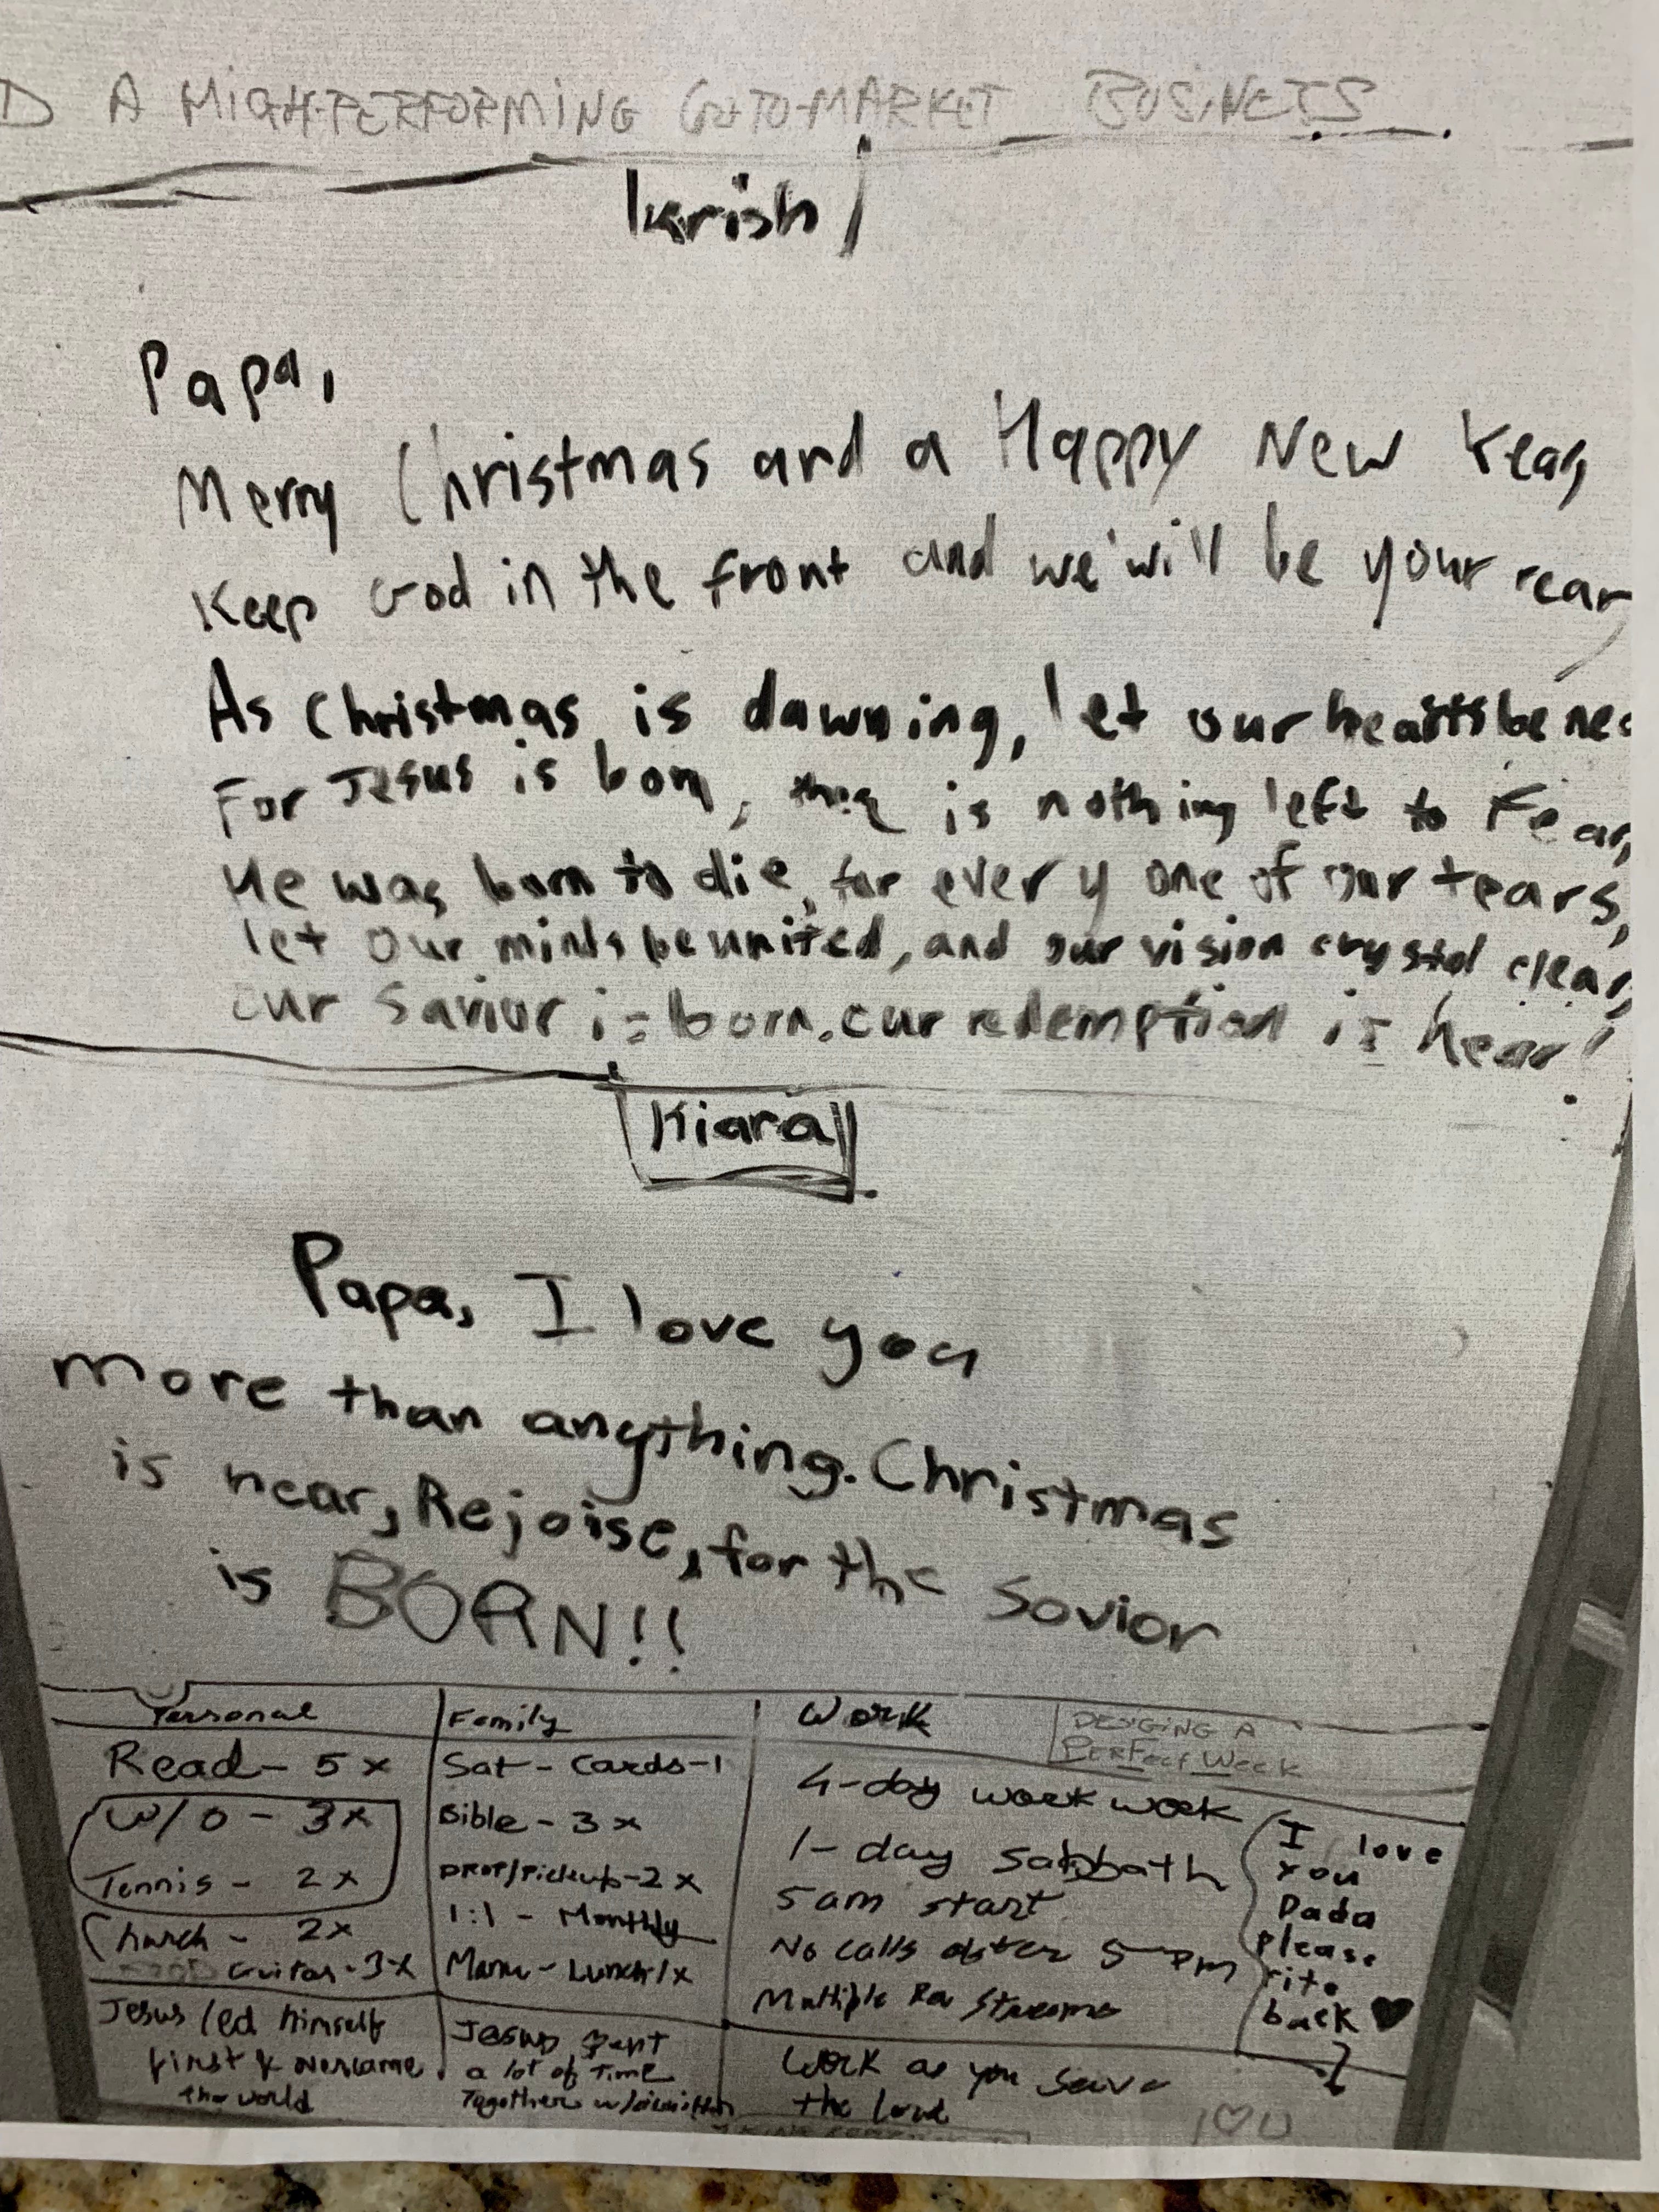 D A HIGH-PERFORMING GO-TO-MARKET BUSINESS
Krish
Papa,
Merry Christmas and a Happy New Year,
Keep God in the front and we'will be your rear,
As Christmas is dawning, let our hearts be nea
For Jesus is born, there is nothing left to Fear,
He was born to die, for every one of our tears,
let our minds be united, and our vision crystal clear,
our Savior is born, our redemption is hear!
Kiara
Papa, I love you
more than anything. Christmas
is near, Rejoise, for the Savior
is BORN!!
Personal
Read - 5x
W/O - 3x
Tennis - 2x
Church - 2x
Guitar - 3x
Jesus led himself
first & overcame
the world
Family
Sat - Cards - 1
Bible - 3x
DROP/Pickup - 2x
1:1 - Monthly
Manu - Lunch 1x
Jesus spent
a lot of Time
Together w/
Work
DESIGING A
PERFECT WEEK
4-day work week
1-day sabbath
5 am start
No calls after 5 pm
Multiple Rev Streams
Work as you serve
the Lord
I love
you
Dada
please
rite
back ♥
I ♡ U